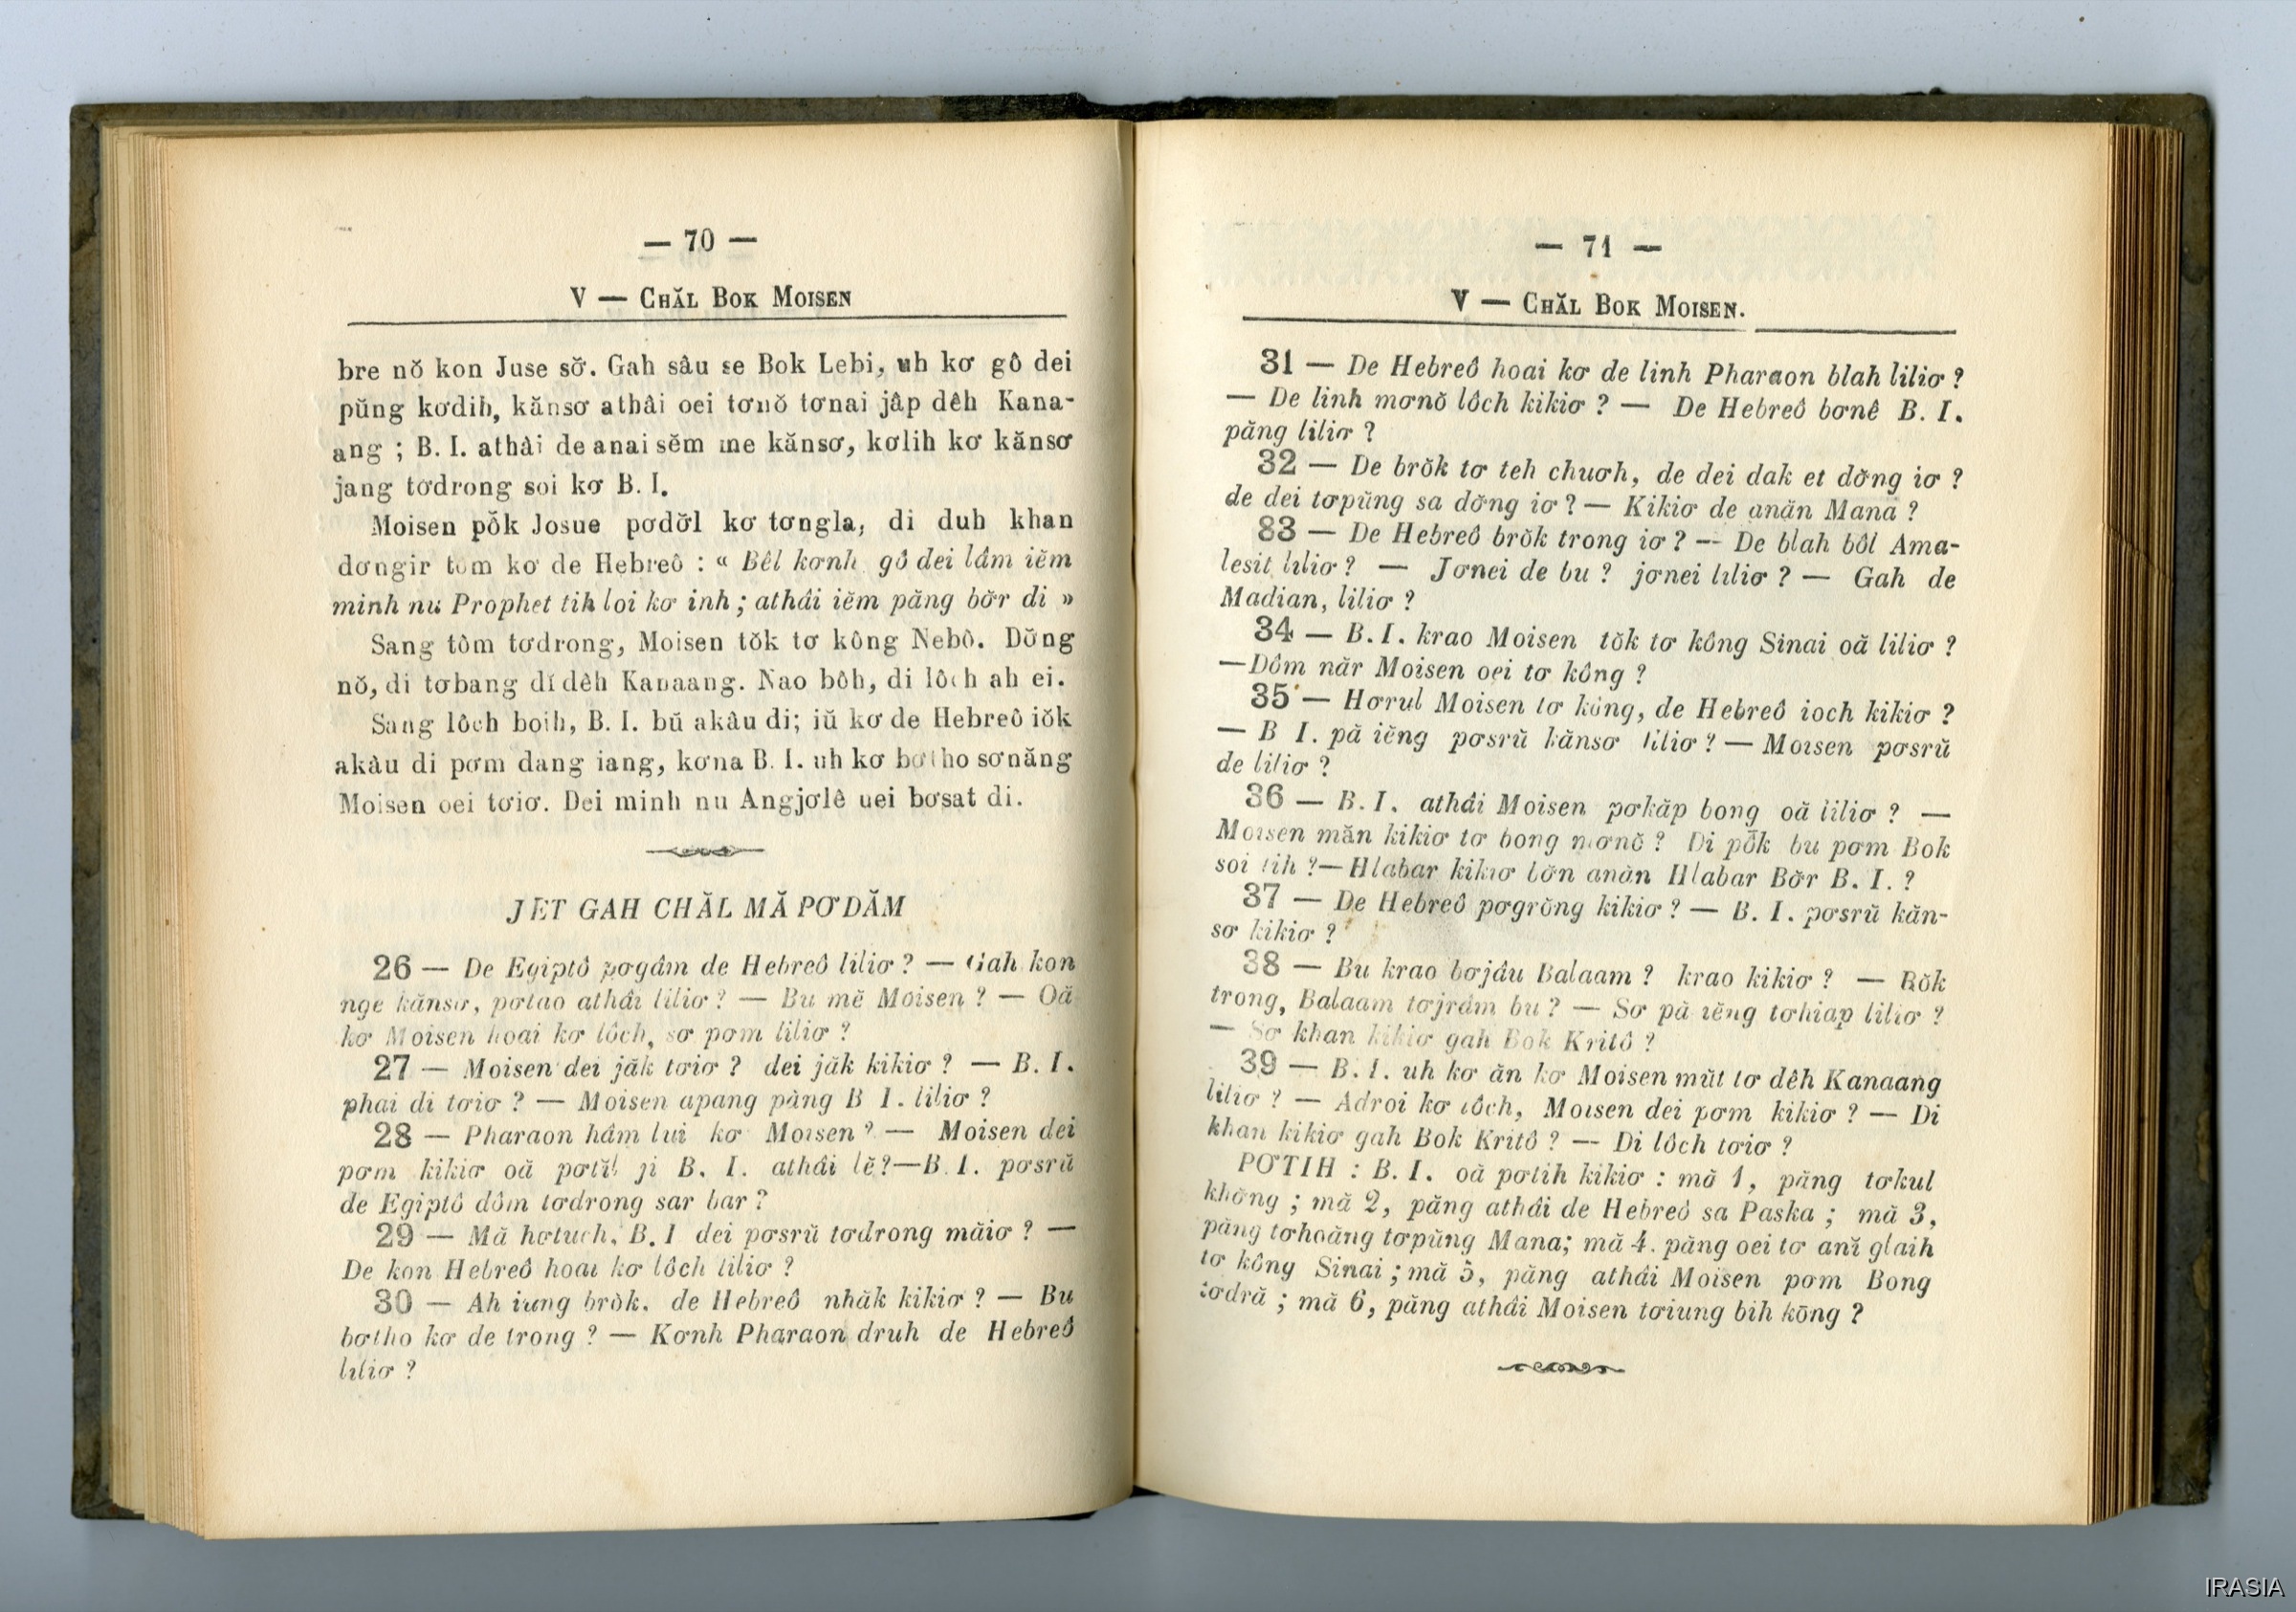 — 70 —
V — CHĂL BOK MOISEN
bre nŏ kon Juse sơ̆. Gah sâu se Bok Lebi, uh kơ gô dei
pŭng kơdih, kănsơ athâi oei tơnŏ tơnai jâp dêh Kana-
ang ; B. I. athâi de anai sĕm me kănsơ, kơlih kơ kănsơ
jang tơdrong soi kơ B. I.
Moisen pŏk Josue pơdơ̆l kơ tơngla, di duh khan
dơngir tôm kơ de Hebreô : « Bêl kơnh gô dei lâm iĕm
minh nu Prophet tih loi kơ inh ; athâi iĕm păng bơ̆r di »
Sang tôm tơdrong, Moisen tŏk tơ kông Nebô. Dơ̆ng
nŏ, di tơbang dĭ dêh Kanaang. Nao bôh, di lôch ah ei.
Sang lôch boih, B. I. bŭ akâu di; iŭ kơ de Hebreô iŏk
akâu di pơm dang iang, kơna B. I. uh kơ bơtho sơnăng
Moisen oei tơiơ. Dei minh nu Angjơlê uei bơsat di.
JĔT GAH CHĂL MĂ PƠDĂM
26 — De Egiptô pơgâm de Hebreô liliơ ? — Gah kon
nge kănsơ, pơtao athâi liliơ ? — Bu mĕ Moisen ? — Oă
kơ Moisen hoai kơ lôch, sơ pơm liliơ ?
27 — Moisen dei jăk tơiơ ? dei jăk kikiơ ? — B. I.
phai di tơiơ ? — Moisen apang păng B I. liliơ ?
28 — Pharaon hâm lui kơ Moisen ? — Moisen dei
pơm kikiơ oă pơtĭl ji B. I. athâi lĕ?—B. I. pơsrŭ
de Egiptô dôm tơdrong sar bar ?
29 — Mă hơtuch, B. I dei pơsrŭ tơdrong măiơ ? —
De kon Hebreô hoai kơ lôch liliơ ?
30 — Ah iung brŏk, de Hebreô nhăk kikiơ ? — Bu
bơtho kơ de trong ? — Kơnh Pharaon druh de Hebreô
liliơ ?
— 71 —
V — CHĂL BOK MOISEN.
31 — De Hebreô hoai kơ de linh Pharaon blah liliơ ?
— De linh mơnŏ lôch kikiơ ? — De Hebreô bơnê B. I.
păng liliơ ?
32 — De brŏk tơ teh chuơh, de dei dak et dơ̆ng iơ ?
de dei tơpŭng sa dơ̆ng iơ ? — Kikiơ de anăn Mana ?
33 — De Hebreô brŏk trong iơ ? — De blah bôl Ama-
lesit liliơ ? — Jơnei de bu ? jơnei liliơ ? — Gah de
Madian, liliơ ?
34 — B. I. krao Moisen tŏk tơ kông Sinai oă liliơ ?
—Dôm năr Moisen oei tơ kông ?
35 — Hơrul Moisen tơ kông, de Hebreô ioch kikiơ ?
— B I. pă iĕng pơsrŭ kănsơ liliơ ? — Moisen pơsrŭ
de liliơ ?
36 — B. I. athâi Moisen pơkăp bong oă liliơ ? —
Moisen măn kikiơ tơ bong mơnŏ ? Di pŏk bu pơm Bok
soi tih ?—Hlabar kikiơ bơ̆n anăn Hlabar Bơ̆r B. I. ?
37 — De Hebreô pơgrŏng kikiơ ? — B. I. pơsrŭ kăn-
sơ kikiơ ?
38 — Bu krao bơjâu Balaam ? krao kikiơ ? — Bŏk
trong, Balaam tơjrâm bu ? — Sơ pă iĕng tơhiap liliơ ?
— Sơ khan kikiơ gah Bok Kritô ?
39 — B. I. uh kơ ăn kơ Moisen mŭt tơ dêh Kanaang
liliơ ? — Adroi kơ lôch, Moisen dei pơm kikiơ ? — Di
khan kikiơ gah Bok Kritô ? — Di lôch tơiơ ?
PƠTIH : B. I. oă pơtih kikiơ : mă 1, păng tơkul
khŏng ; mă 2, păng athâi de Hebreô sa Paska ; mă 3,
păng tơhoăng tơpŭng Mana; mă 4. păng oei tơ anĭ glaih
tơ kông Sinai ; mă 5, păng athâi Moisen pơm Bong
tơdră ; mă 6, păng athâi Moisen tơiung bih kŏng ?
IRASIA